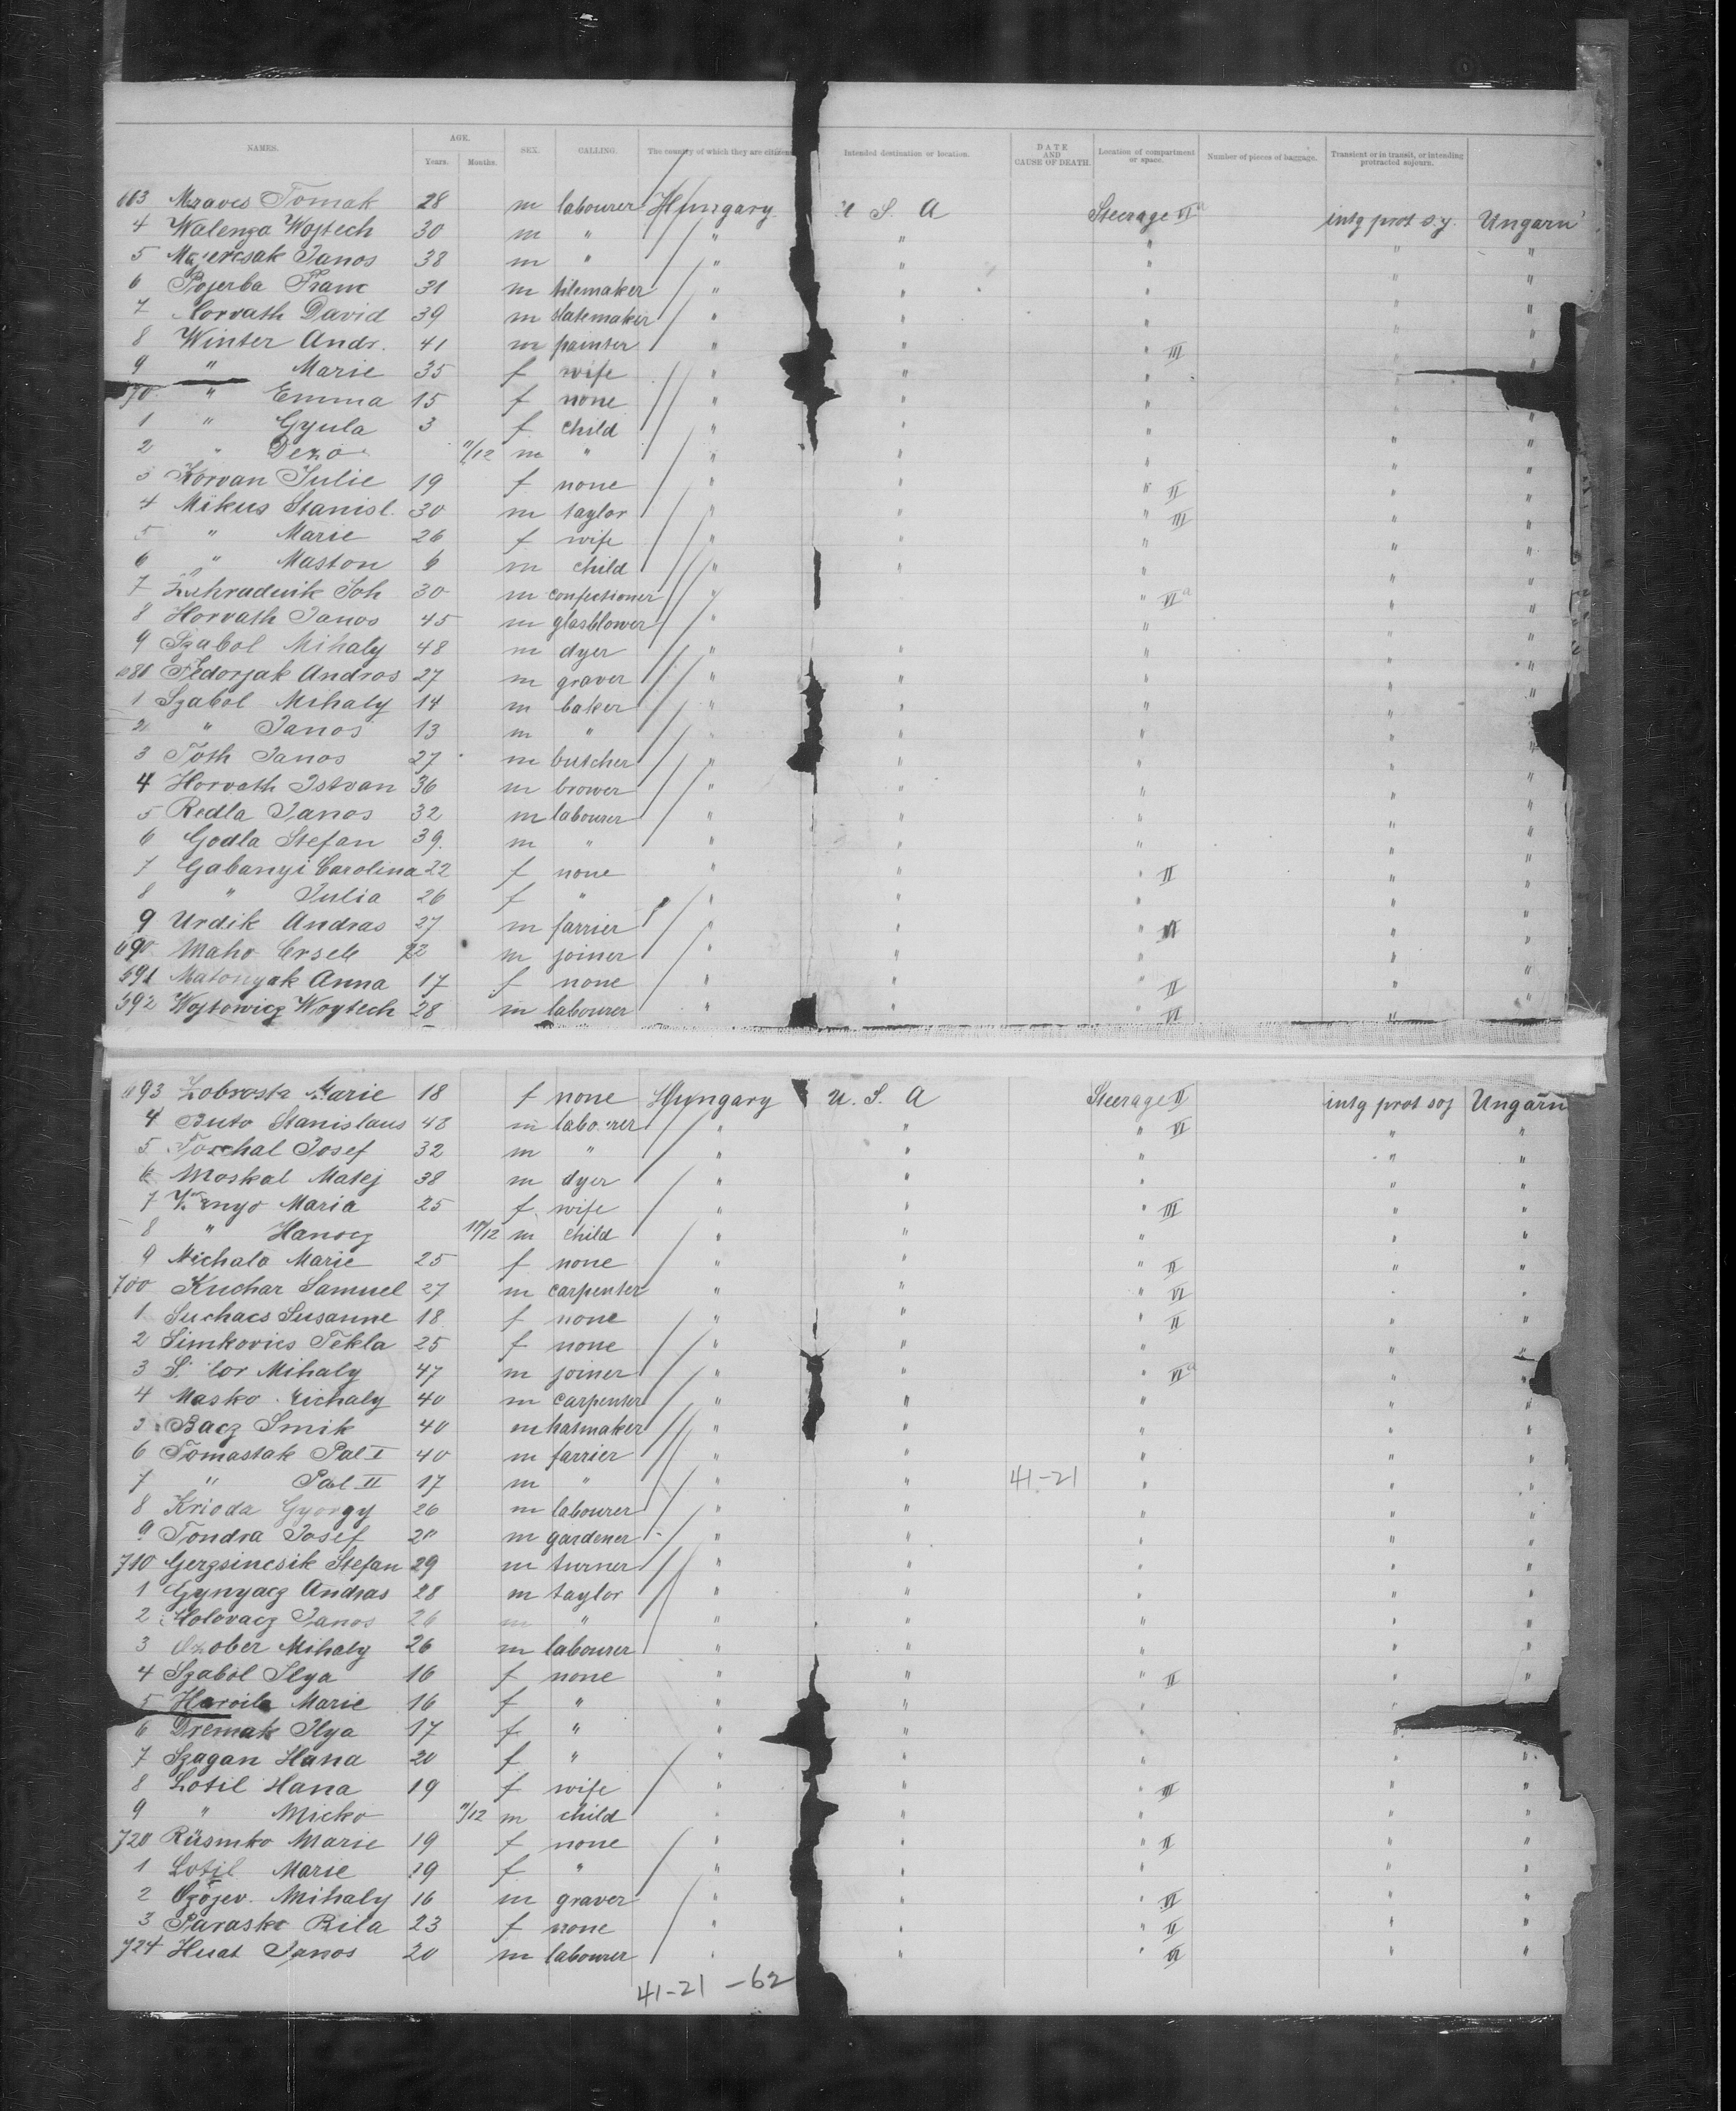 NAMES. AGE. Years. Months. SEX. CALLING. The country of which they are citizens Intended destination or location. DATE AND CAUSE OF DEATH. Location of compartment or space. Number of pieces of baggage. Transient or in transit, or intending protracted sojourn.
663 Mraves Tomak 28 m labourer Hungary U S. A Steerage VI a intg prot soj Ungarn
4 Walenza Wojtech 30 m " " " " " "
5 Majercsak Janos 38 m " " " " " "
6 Pojerba Franc 31 m tilemaker " " " " "
7 Horvath David 39 m slatemaker " " " " "
8 Winter Andr. 41 m painter " " " III " "
9 " Marie 35 f wife " " " " "
70 " Emma 15 f none " " " " "
1 " Gyula 3 f child " " " " "
2 " Dezo 11/12 m " " " " " "
3 Korvan Julie 19 f none " " " II " "
4 Mikus Stanisl. 30 m taylor " " " III " "
5 " Marie 26 f wife " " " " "
6 " Maston 6 m child " " " " "
7 Zuhradnik Joh 30 m confectioner " " VI a " "
8 Horvath Janos 45 m glasblower " " " "
9 Szabol Mihaly 48 m dyer " " " " "
680 Fedorjak Andros 27 m graver " " " " "
1 Szabol Mihaly 14 m baker " " " "
2 " Janos 13 m " " " " " "
3 Toth Janos 27 m butcher " " " " "
4 Horvath Istvan 36 m brower " " " " "
5 Redla Janos 32 m labourer " " " " "
6 Godla Stefan 39. m " " " " " "
7 Gabanyi Carolina 22 f none " " " II " "
8 " Julia 26 f " " " " " "
9 Urdik Andras 27 m farrier " " " VI " "
690 Maho Ersek 22 m joiner " " " " "
691 Matonyak Anna 17 f none " " " II " "
692 Wojtowicz Woytech 28 m labourer " " VI " "
693 Marie 18 f none Hungary U. S. A Steerage II intg prot soj Ungarn
4 Buto Stanislaus 48 m labourer " " " VI " "
5 Josef 32 m " " " " " "
6 Moskal Matej 38 m dyer " " " " "
7 Maria 25 f wife " " " III " "
8 " Hanocz 11/12 m child " " " " "
9 Michala Marie 25 f none " " " II " "
700 Kuchar Samuel 27 m carpenter " " " VI " "
1 Suchacs Susanne 18 f none " " " II " "
2 Simkovics Tekla 25 f none " " " " "
3 Mihaly 47 m joiner " " " VI a " "
4 Masko Michaly 40 m carpenter " " " " "
5 Bacz Smik 40 m hatmaker " " " " "
6 Tomastak Pal I 40 m farrier " " " " "
7 " Pal II 17 m " " " 41-21 " " "
8 Krioda Gyorgy 26 m labourer " " " " "
9 Tondra Josef 20 m gardener " " " " "
710 Gerzsincsik Stefan 29 m turner " " " " "
1 Gynyacz Andras 28 m taylor " " " " "
2 Holovacz Janos 26 m " " " " " "
3 Czober Mihaly 26 m labourer " " " " "
4 Szabol Ilya 16 f none " " " II " "
5 Haroila Marie 16 f " " " " " "
6 Dremak Ilya 17 f " " " " " "
7 Szagan Hana 20 f " " " " " "
8 Lotil Hana 19 f wife " " " III " "
9 " Micko 11/12 m child " " " " "
720 Rüsmko Marie 19 f none " " " II " "
1 Lotil Marie 19 f " " " " " "
2 Mihaly 16 m graver " " " VI " "
3 Parasko Rila 23 f none " " " II " "
724 Huat Janos 20 m labourer " " " VI " "
41-21 -62